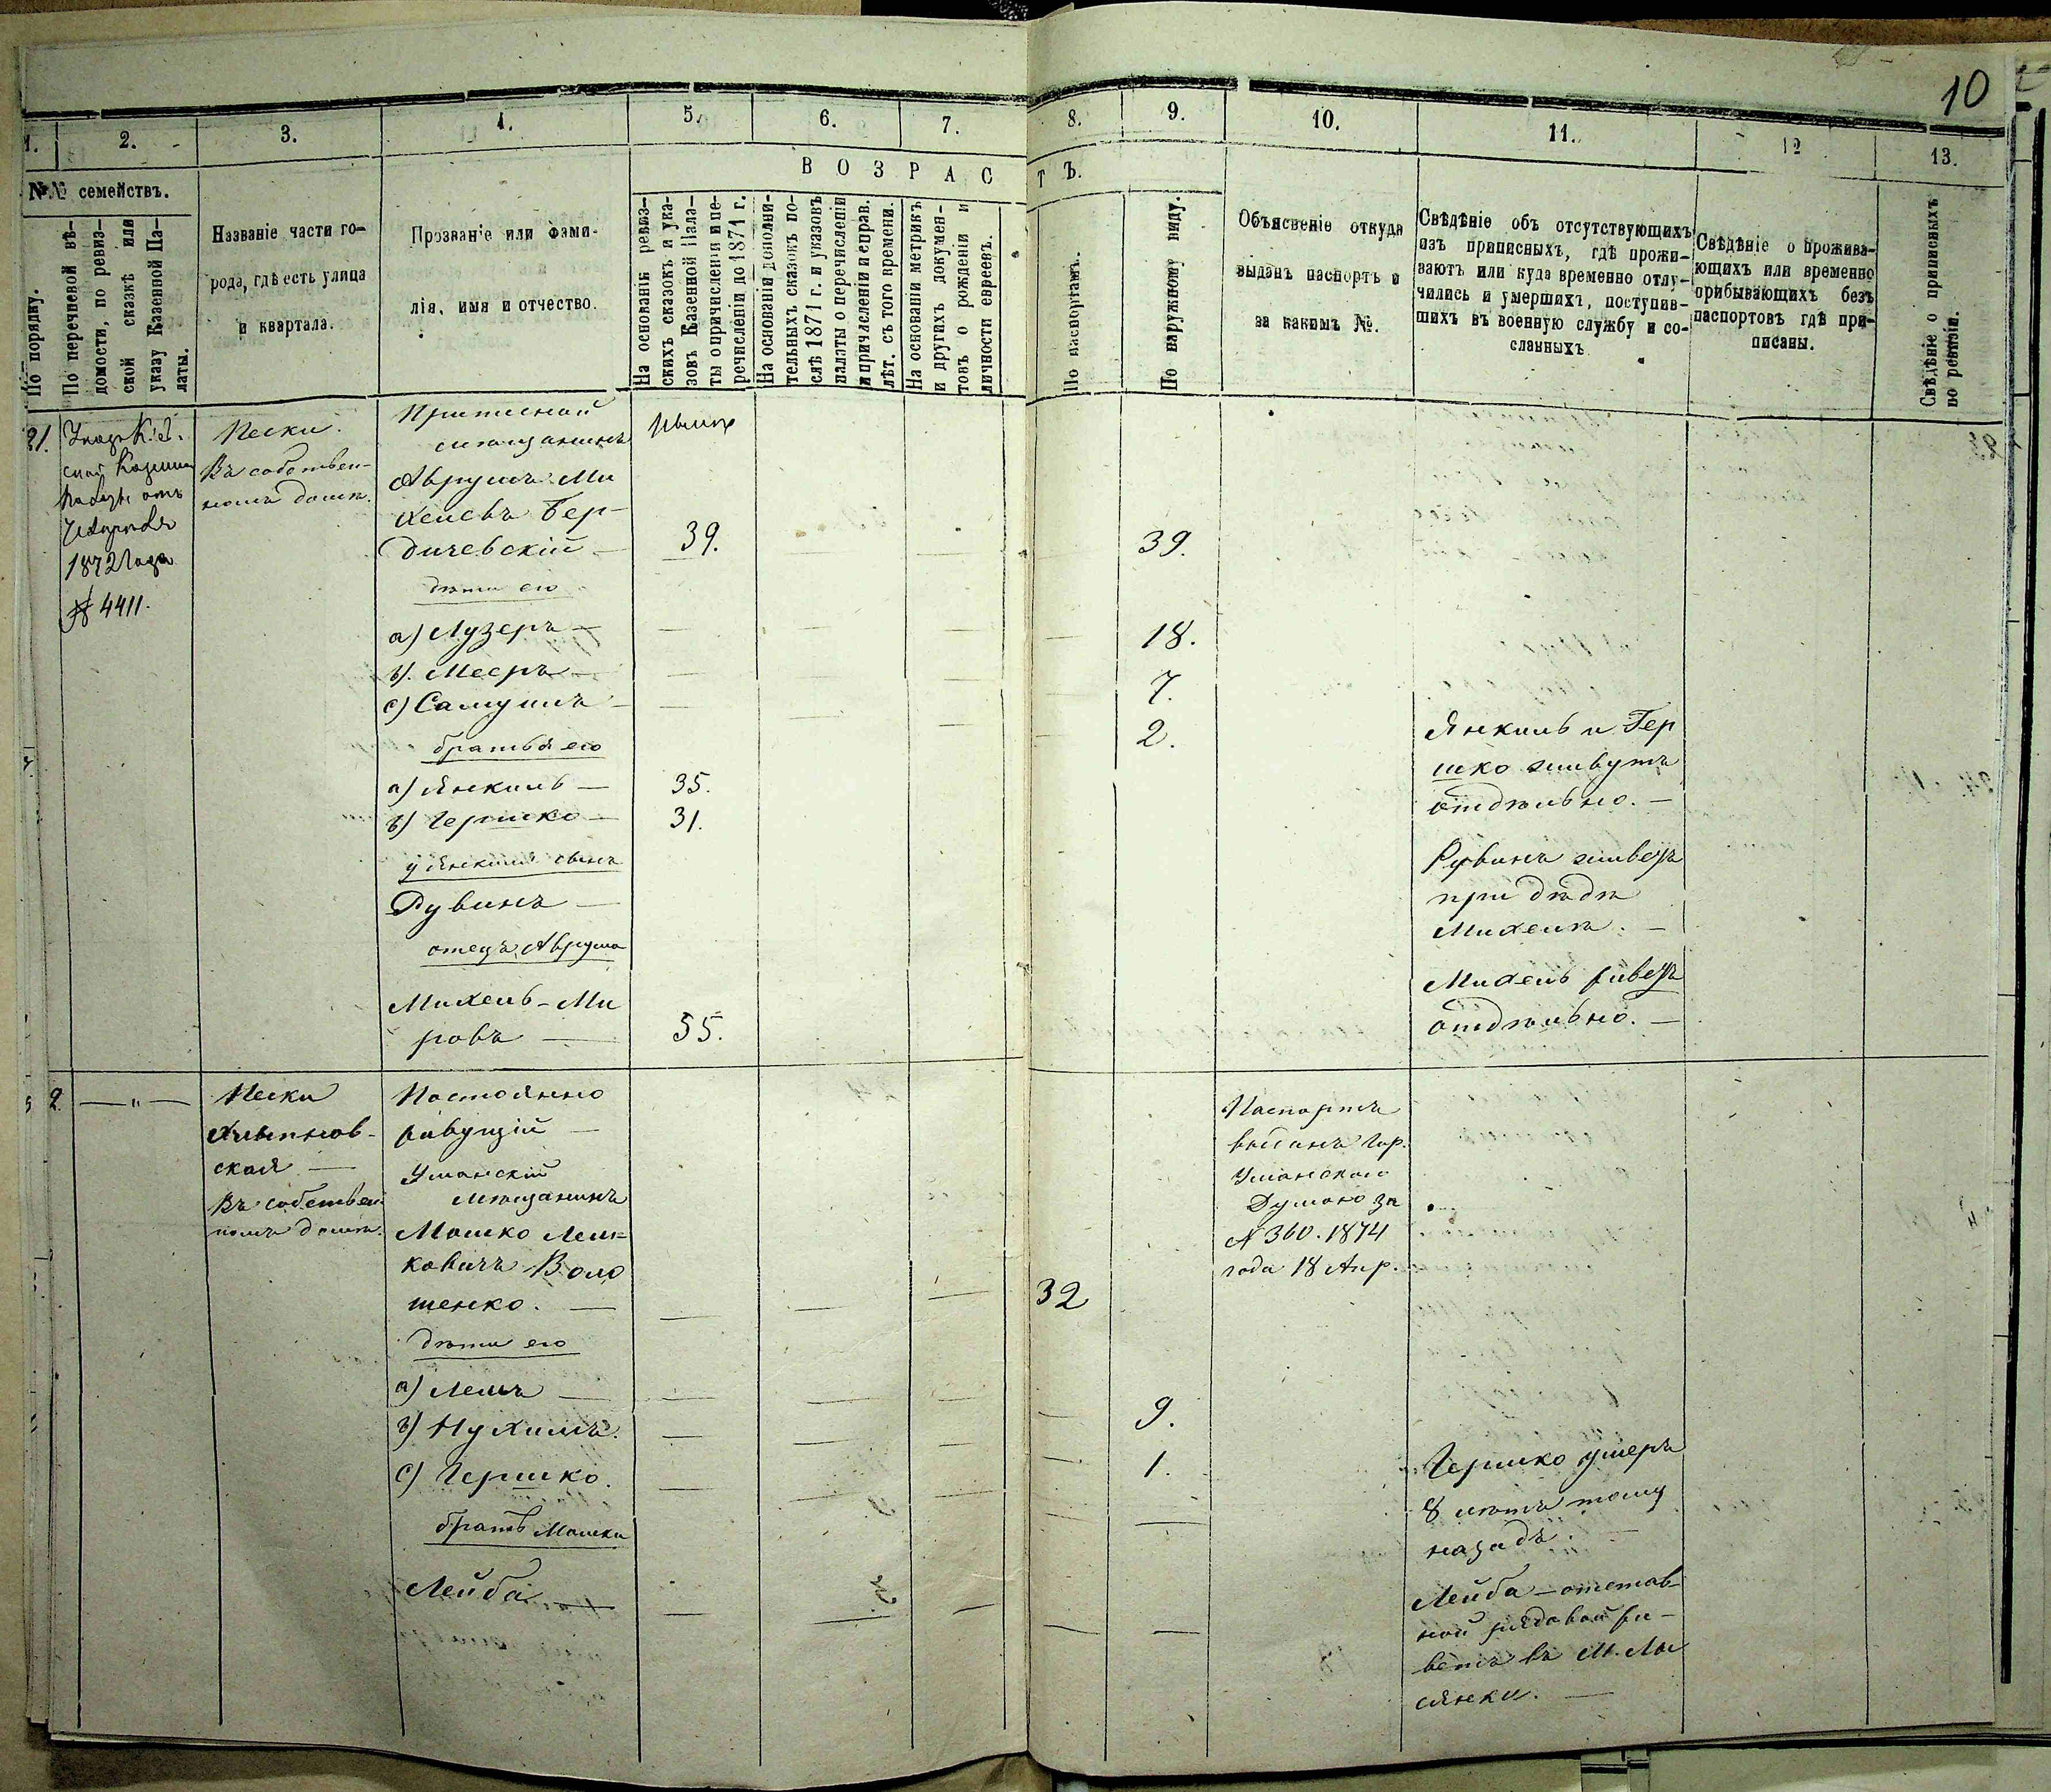 10
1.
2.
3.
4.
5.
6.
7.
8.
9.
10.
11.
12
13.
№№ семействъ.
По порядку.
По перечневой вѣ-
домости, по ревиз-
ской сказкѣ или
указу Казенной Па-
латы.
Названіе части го-
рода, гдѣ есть улица
и квартала.
Прозваніе или фами-
лія, имя и отчество.
ВОЗРАС
ТЪ.
На основаніи ревиз-
скихъ сказокъ и ука-
зовъ Казенной Пала-
ты о причисленіи и пе-
речисленіи до 1871 г.
На основаніи дополни-
тельныхъ сказокъ по-
слѣ 1871 г. и указовъ
палаты о перечисленіи
и причисленіи и справ.
лѣт. съ того времени.
На основаніи метрикъ
и другихъ докумен-
товъ о рожденіи и
личности евреевъ.
По паспортамъ.
По наружному виду.
Объясненіе откуда
выданъ паспортъ и
за какимъ №.
Свѣдѣніе объ отсутствующихъ
изъ приписныхъ, гдѣ прожи-
ваютъ или куда временно отлу-
чились и умершихъ, поступив-
шихъ въ военную службу и со-
сланныхъ
Свѣдѣніе о прожива-
ющихъ или временно
прибывающихъ безъ
паспортовъ гдѣ при-
писаны.
Свѣдѣніе о приписныхъ
по ревизіи.
Указъ Кіев.
ской Казенн
Палаты отъ
1872 года
№ 4411.
Пески.
Въ собствен-
номъ домѣ.
Приписной
мѣщанинъ
Аврумъ Ми
хелевъ Бер-
дичевскій —
39.
39.
дѣти его
а) Лузеръ —
18.
в). Мееръ —
7.
с) Самуилъ —
2.
братья его
а) Янкель —
35.
в) Гершко —
31.
у Янкеля сынъ
Рувинъ —
отецъ Аврума
Михель-Ми
ровъ —
55.
Янкель и Гер
шко живутъ
отдѣльно. —
Рувинъ живетъ
при дѣдѣ
Михелѣ. —
Михель живетъ
отдѣльно. —
2.
— „ —
Пески
ская —
Въ собствен
номъ домѣ.
Постоянно
живущій —
Уманскій
мѣщанинъ
Мошко Лем=
ковичъ Воло
шенко. —
32
дѣти его
а) Лемъ —
9.
в) Нухимъ.
1.
с) Гершко.
братъ Мошки
Лейба —
Паспортъ
выданъ Гор.
Уманскою
Думою за
№ 360. 1874
года 18 Апр.
Гершко умеръ
8 лѣтъ тому
назадъ. —
Лейба — отстав-
ной рядовой жи-
ветъ въ М. Лы
сянки. —